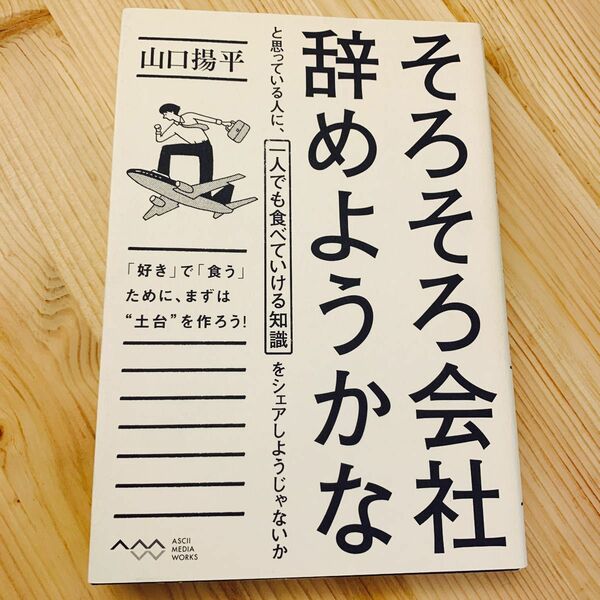 そろそろ会社
辞めようかな
と思っている人に、一人でも食べていける知識をシェアしようじゃないか
山口揚平
「好き」で「食う」
ために、まずは
“土台”を作ろう!
ASCII
MEDIA
WORKS